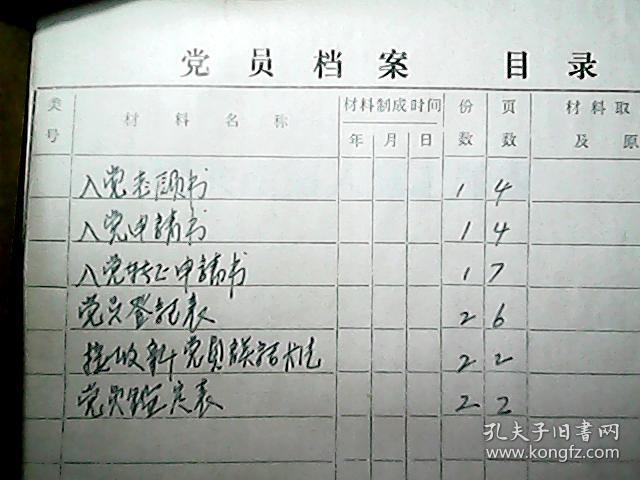 党员档案 目录
类号 材料名称 材料制成时间 份数 页数 材料取
年 月 日 及 原
入党志愿书 1 4
入党申請书 1 4
入党转正申請书 1 7
党员登記表 2 6
接收新党员談話 2 2
党员鑑定表 2 2
孔夫子旧书网
www.kongfz.com